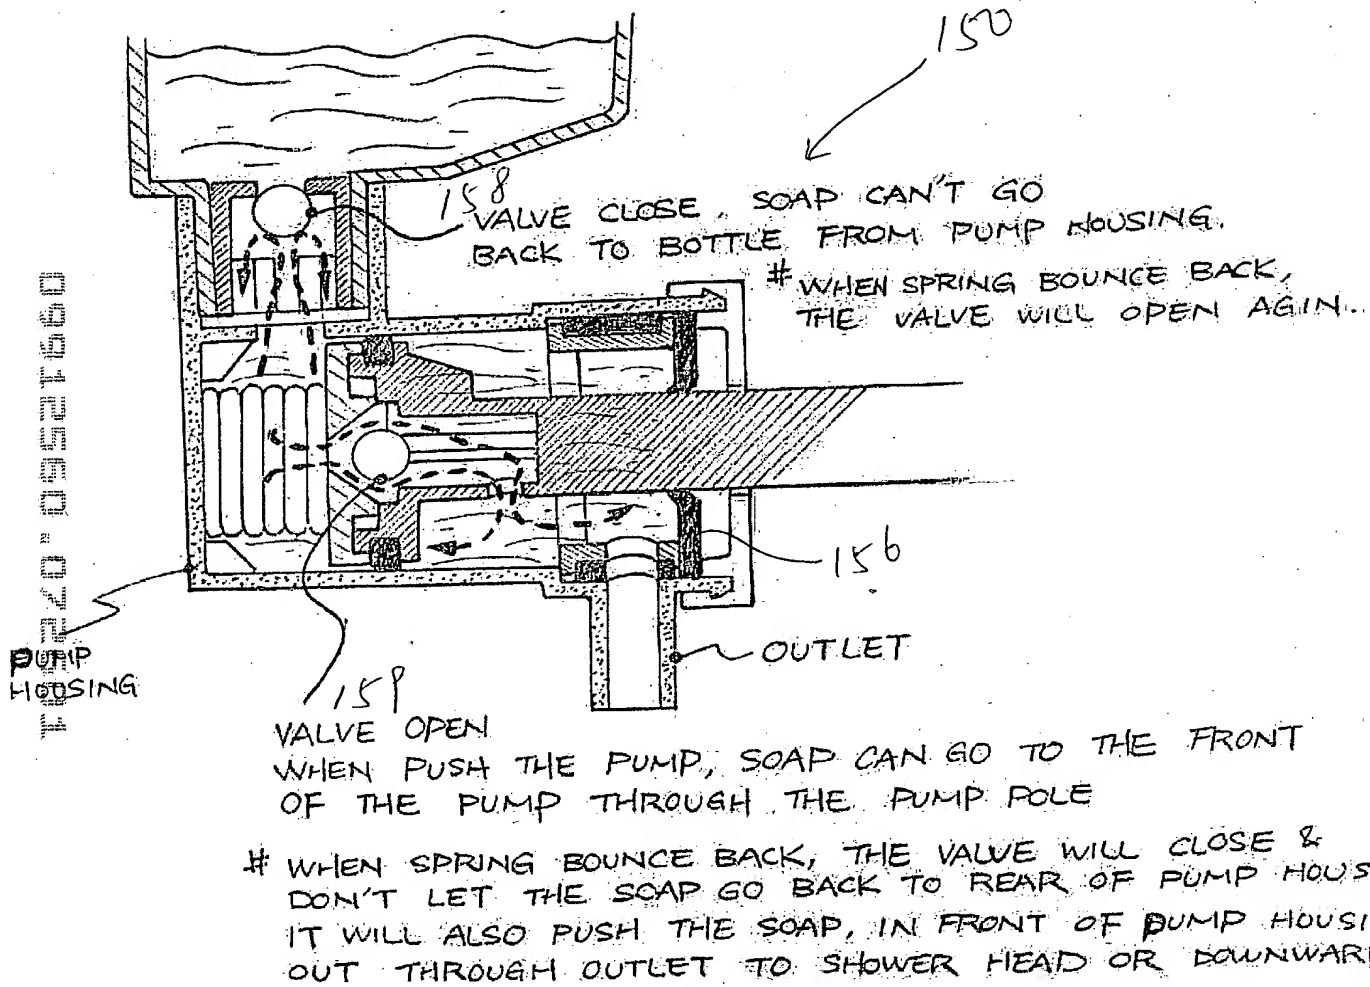 150
158
VALVE CLOSE. SOAP CAN'T GO
BACK TO BOTTLE FROM PUMP HOUSING.
# WHEN SPRING BOUNCE BACK,
THE VALVE WILL OPEN AGIN..
156
OUTLET
PUMP
HOUSING
159
VALVE OPEN
WHEN PUSH THE PUMP, SOAP CAN GO TO THE FRONT
OF THE PUMP THROUGH THE PUMP POLE
# WHEN SPRING BOUNCE BACK, THE VALVE WILL CLOSE &
DON'T LET THE SOAP GO BACK TO REAR OF PUMP HOUS
IT WILL ALSO PUSH THE SOAP, IN FRONT OF PUMP HOUSI
OUT THROUGH OUTLET TO SHOWER HEAD OR DOWNWAR